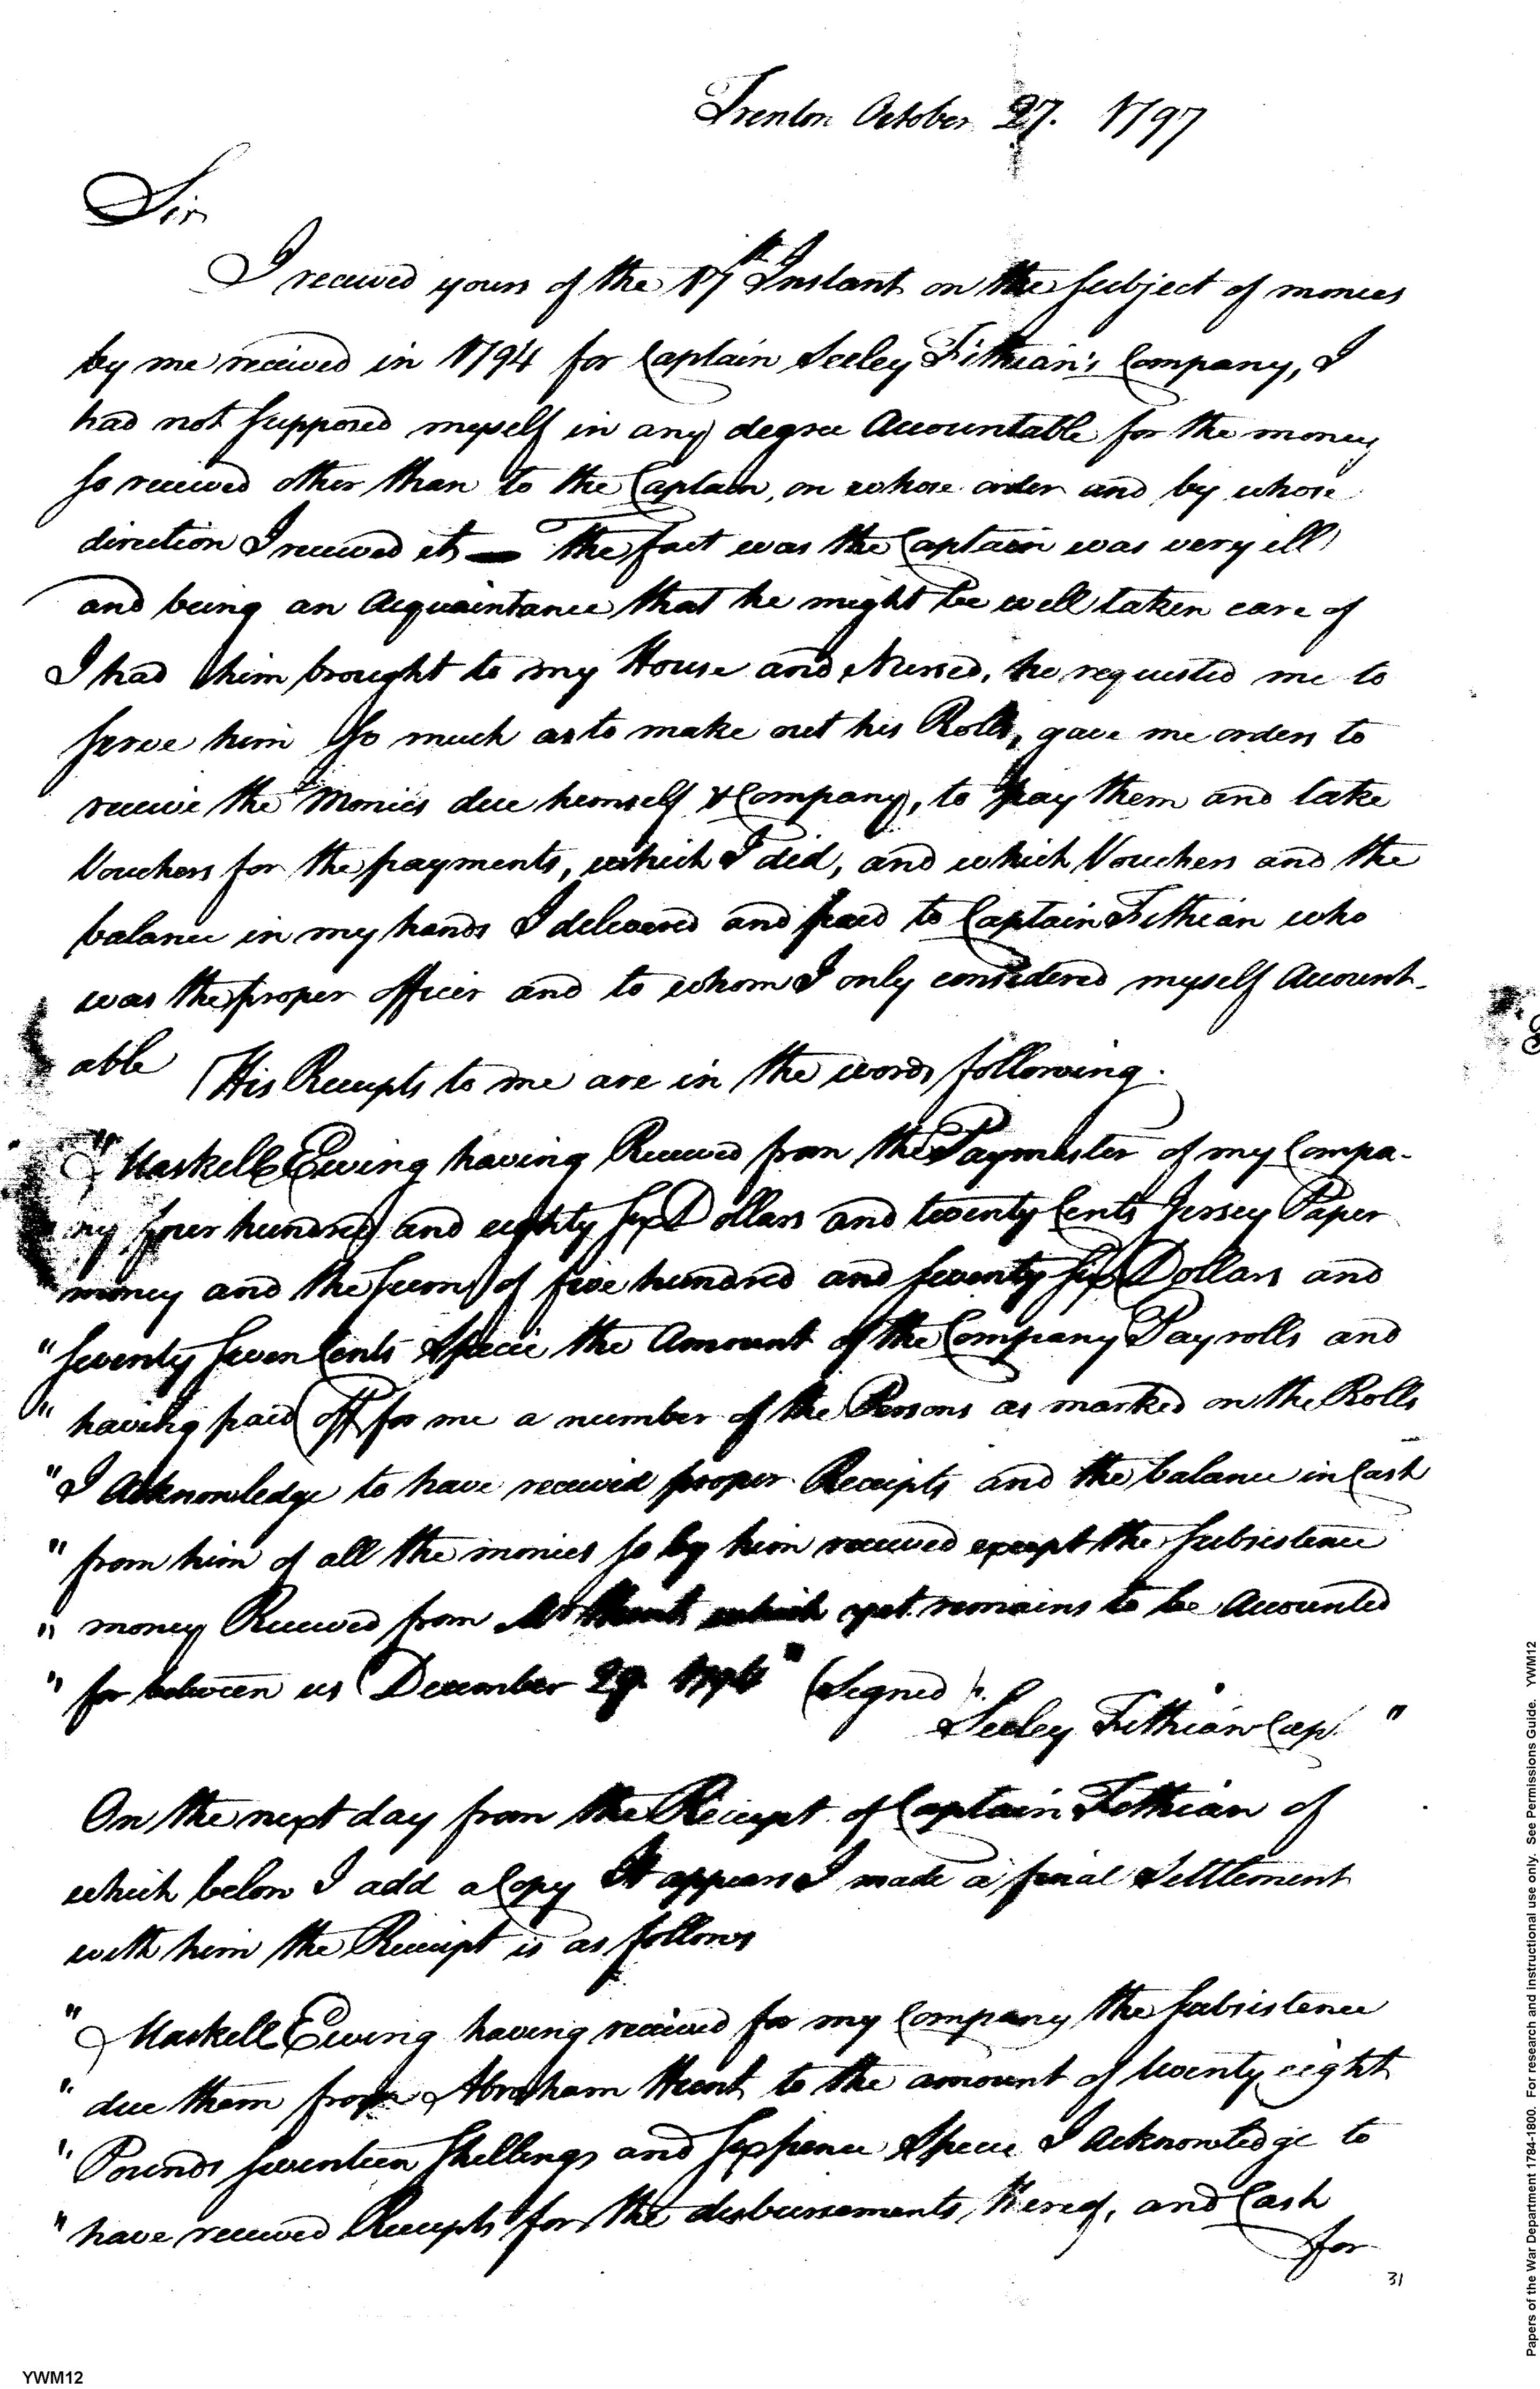 Trenton October 27. 1797
Sir
I received yours of the 17th Instant on the Subject of monies
by me received in 1794 for Captain Seeley Fithian's Company, I
had not Supposed myself in any degree Accountable for the money
So received other than to the Captain, on whose order and by whose
direction I received it — The fact was the Captain was very ill
and being an Acquaintance that he might be well taken care of
I had him brought to my House and Nursed, he requested me to
Serve him So much as to make out his Rolls, gave me orders to
receive the Monies due himself & Company, to pay them and take
Vouchers for the payments, which I did, and which Vouchers and the
balance in my hands I delivered and paid to Captain Fithian who
was the proper officer and to whom I only considered myself Account-
able His Receipts to me are in the words following.
" Maskell Ewing having Received from the Paymaster of my Compa-
ny four hundred and eighty Six Dollars and twenty Cents Jersey Paper
money and the Sum of five hundred and Seventy Six Dollars and
" Seventy Seven Cents Specie the Amount of the Company Payrolls and
" having paid off for me a number of the Persons as marked on the Rolls
" I Acknowledge to have received proper Receipts and the balance in Cash
" from him of all the monies So by him received except the Subsistence
" money Received from Mr Hunt which yet remains to be Accounted
" for between us December 29. 1794" (Signed
Seeley Fithian Cap. "
On the next day from the Receipt of Captain Fithian of
which below I add a Copy It appears I made a final Settlement
with him the Receipt is as follows
" Maskell Ewing having received for my Company the Subsistence
" due them from Abraham Hunt to the amount of twenty eight
" Pounds Seventeen Shillings and Sixpence Specie I Acknowledge to
" have received Receipts for the disbursements thereof, and Cash
for
31
YWM12
Papers of the War Department 1784-1800. For research and instructional use only. See Permissions Guide. YWM12